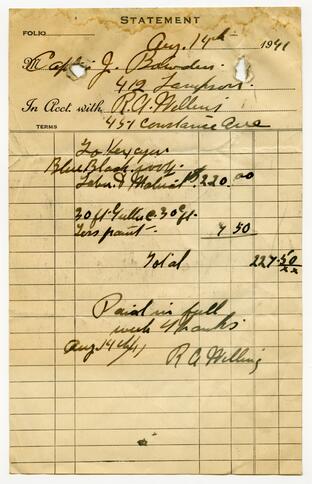 STATEMENT
FOLIO
Aug. 14th 1941
M Capt J. Bowden
412 Lampson
In Acct. with R. A. Willing
TERMS 451 Constance Ave
Blue Black roof
Labor & Material $220.00
30 ft Gutter @ 30¢ ft.
Less paint 7 50
Total 227.50
Paid in full
with thanks
Aug 14th/41
R A Willing